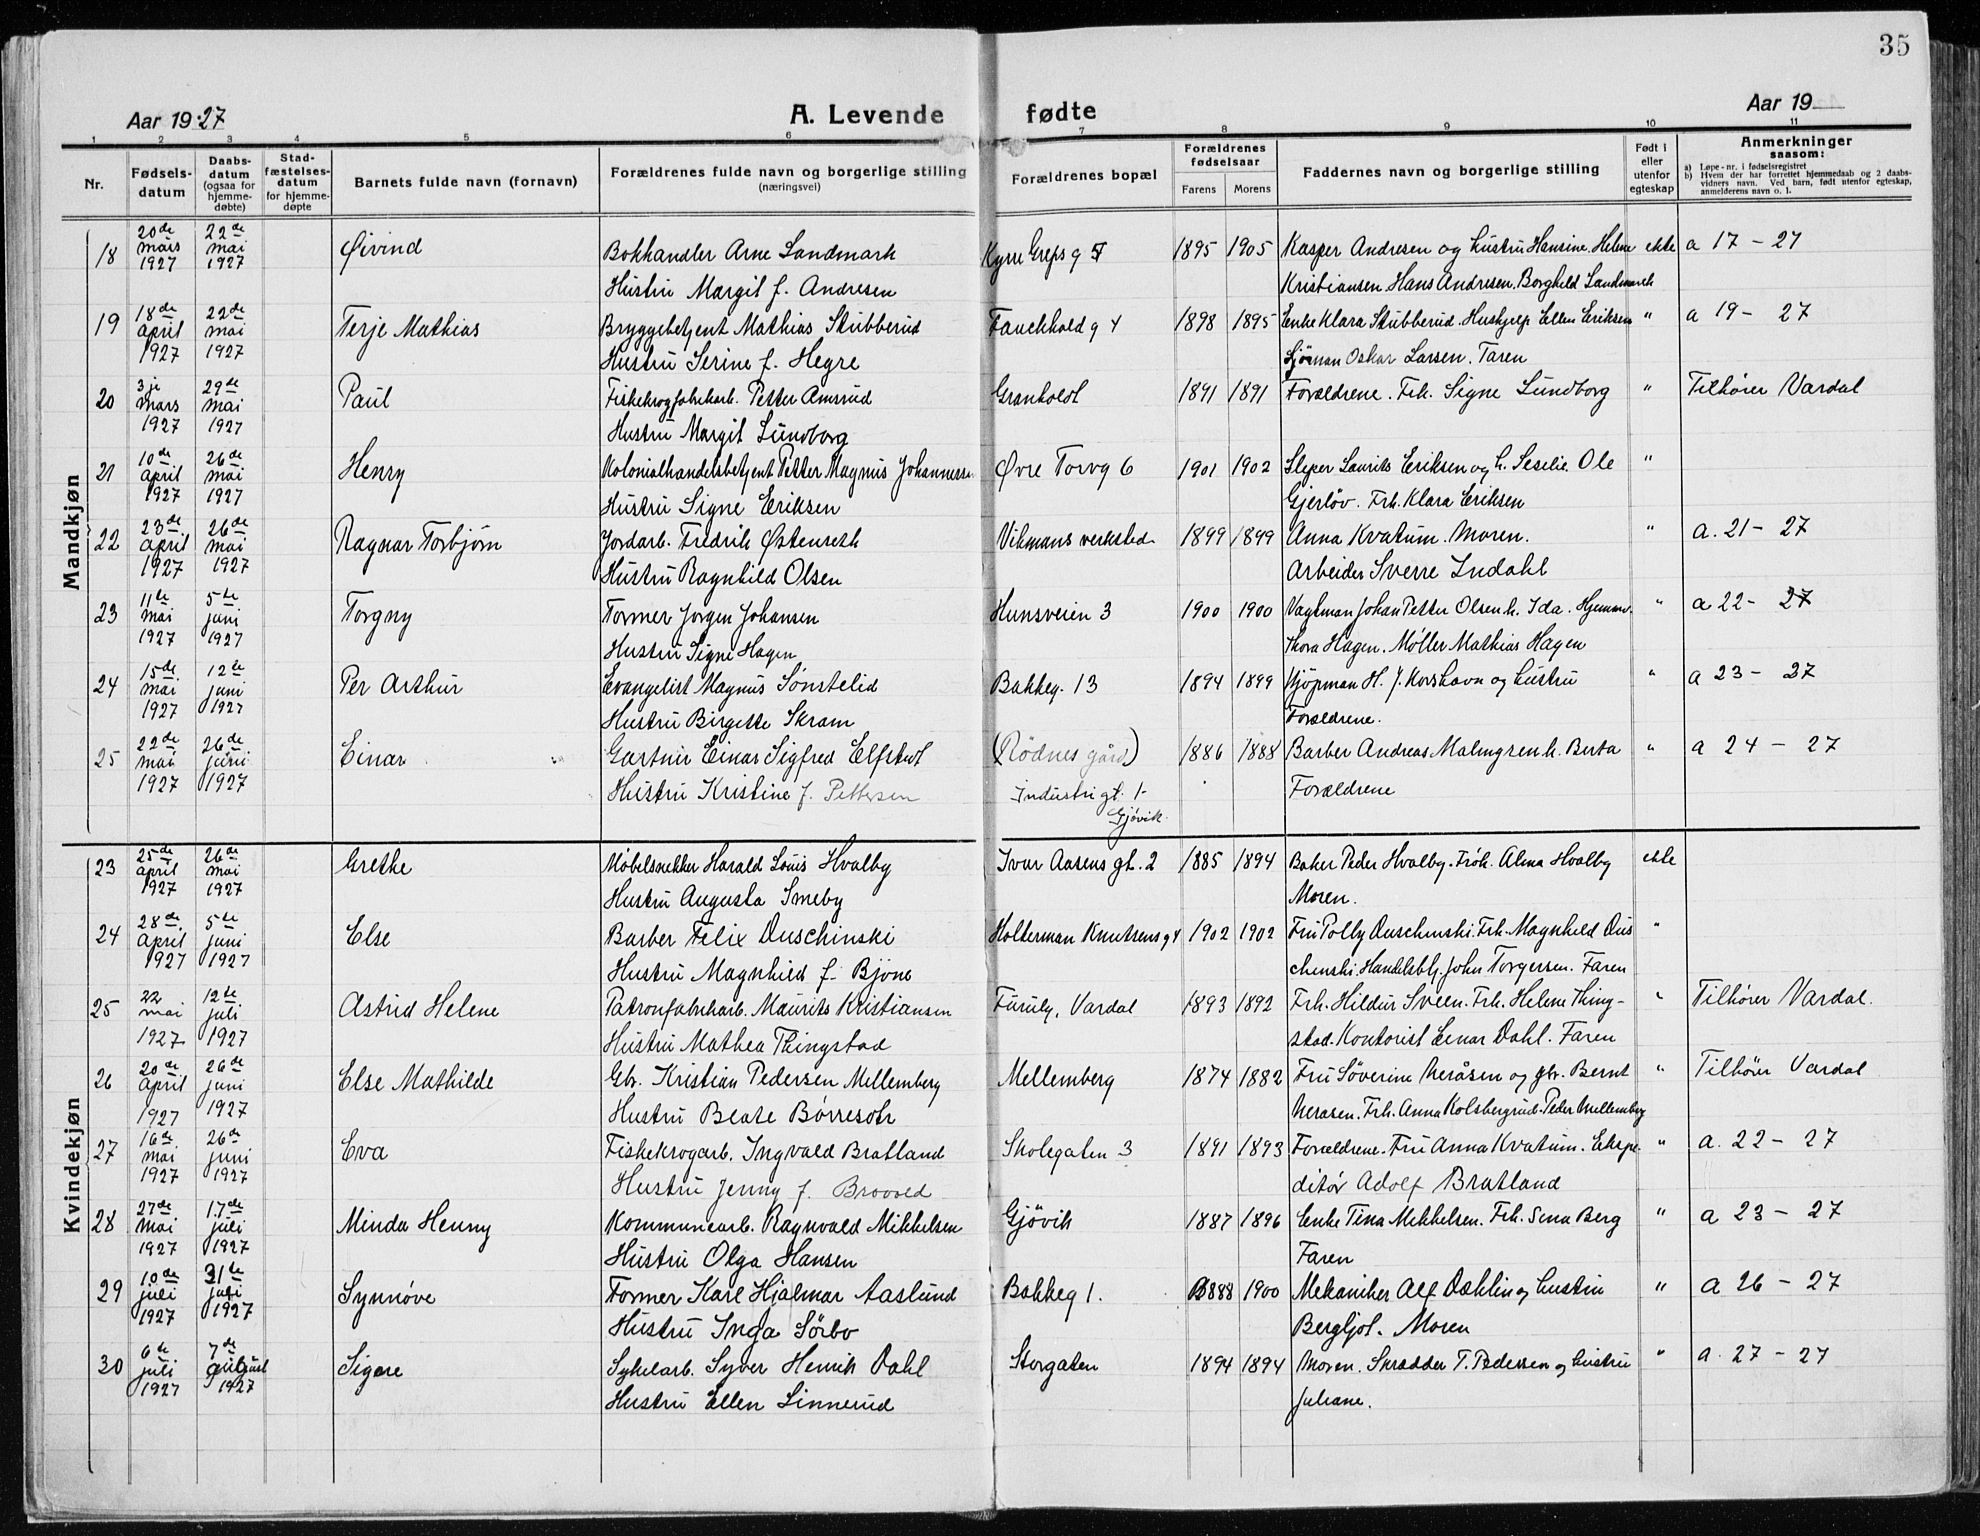 35
Aar 1927 A. Levende fødte Aar 19
1 2 3 4 5 6 7 8 9 10 11
Nr. Fødsels-datum Daabs-datum (ogsaa for hjemme-døbte) Stad-fæstelses-datum for hjemme-døpte Barnets fulde navn (fornavn) Forældrenes fulde navn og borgerlige stilling (næringsvei) Forældrenes bopæl Forældrenes fødselsaar Farens Morens Faddernes navn og borgerlige stilling Født i eller utenfor egteskap Anmerkninger saasom:
a) Løpe-nr. i fødselsregistret
b) Hvem der har forrettet hjemmedaab og 2 daabs-vidners navn. Ved barn, født utenfor egteskap, anmelderens navn o. l.
Mandkjøn
18 20de mars 1927 22de mai 1927 Øivind Bokhandler Arne Landmark Kyrre Greps g 5 1895 1905 Kasper Andresen og hustru Hansine. Helene ekte a 17 - 27
Hustru Margit f. Andresen Kristiansen. Hans Andresen. Borghild Landmark
19 18de april 1927 22de mai 1927 Terje Mathias Bryggebetjent Mathias Stubberud Fauchhold g 4 1898 1895 Enke Klara Stubberud. Hushjelp Ellen Eriksen " a 19 - 27
Hustru Serine f. Hegre Sjöman Oskar Larsen. Faren
20 3je mars 1927 29de mai 1927 Paul Fiskekrogfabrikarb. Petter Amrud Granholdt 1891 1891 Forældrene. Frk. Signe Lundborg " Tilhører Vardal
Hustru Margit Lundborg
21 10de april 1927 26de mai 1927 Henry Kolonialhandelsbetjent Petter Magnus Johannessen Øvre Torvg 6 1901 1902 Sleper Laurits Eriksen og h. Sesilie. Ole "
Hustru Signe Eriksen Gjerløv. Frk. Klara Eriksen
22 23de april 1927 26de mai 1927 Ragnar Torbjørn Jordarb. Fredrik Østenreth Vikmans verksted 1899 1899 Anna Kvatum. Moren. " a. 21 - 27
Hustru Ragnhild Olsen Arbeider Sverre Indahl
23 11te mai 1927 5te juni 1927 Torgny Former Jørgen Johansen Hunsveien 3 1900 1900 Vagtman Johan Petter Olsen h. Ida. Hjemmv. " a 22 - 27
Hustru Signe Hagen Thora Hagen. Møller Mathias Hagen
24 15de mai 1927 12te juni 1927 Per Arthur Evangelist Magnus Sønstelid Bakkeg. 13 1894 1899 Kjøpman H. J. Korshavn og hustru " a 23 - 27
Hustru Birgitte Skram Forældrene.
25 22de mai 1927 26de juni 1927 Einar Gartner Einar Sigfred Elfstedt (Rödnes gård) 1886 1888 Barber Andreas Malmgren h. Berta " a 24 - 27
Hustru Kristine f. Pettersen Industri gt. 1 - Gjøvik. Forældrene
Kvindekjøn
23 25de april 1927 26de mai 1927 Grethe Møbelsnekker Harald Louis Hvalby Ivar Aasens gt. 2 1885 1894 Baker Peder Hvalby. Frøk. Alma Hvalby ekte
Hustru Augusta Smeby Moren.
24 28de april 1927 5te juni 1927 Else Barber Felix Duschinski Holterman Knutsens g 4 1902 1902 Fru Polly Duschinski. Frk. Magnhild Dus "
Hustru Magnhild f. Bjöne chinski. Handelsbtj. John Torgersen. Faren
25 22 mai 1927 12te juli 1927 Astrid Helene Patronfabrikarb. Maurits Kristiansen Furuly, Vardal 1893 1892 Frk. Hildur Sveen. Frk. Helene Thing- " Tilhører Vardal.
Hustru Mathea Thingstad stad. Kontorist Einar Dahl. Faren
26 20de april 1927 26de juni 1927 Else Mathilde Gbr. Kristian Pedersen Mellemberg Mellemberg 1874 1882 Fru Søverine Neråsen og gbr. Bernt " Tilhører Vardal
Hustru Beate Børresdtr Neråsen. Frk. Anna Kolsbergrud. Peder Mellemberg
27 16de mai 1927 26de juni 1927 Eva Fiskekrogarb. Ingvald Bratland Skolegaten 3 1891 1893 Forældrene. Fru Anna Kvatum. Ekspe- " a. 22 - 27
Hustru Jenny f. Brovold ditør Adolf Bratland
28 27de mai 1927 17de juli 1927 Minda Henny Kommunearb. Ragnvald Mikkelsen Gjövik 1887 1896 Enke Tina Mikkelsen. Frk. Sina Berg " a 23 - 27
Hustru Olga Hansen Faren
29 10de juli 1927 31te juli 1927 Synnøve Former Karl Hjalmar Aaslund Bakkeg 1. 1888 1900 Mekaniker Alf Dæhlin og hustru " a 26 - 27
Hustru Inga Sörbo Bergljot. Moren
30 6te juli 1927 7de august 1927 Signe Sykelarb. Syver Henrik Dahl Storgaten 1894 1894 Moren. Skrædder T. Pedersen og hustru " a. 27 - 27
Hustru Ellen Linnerud Juliane.